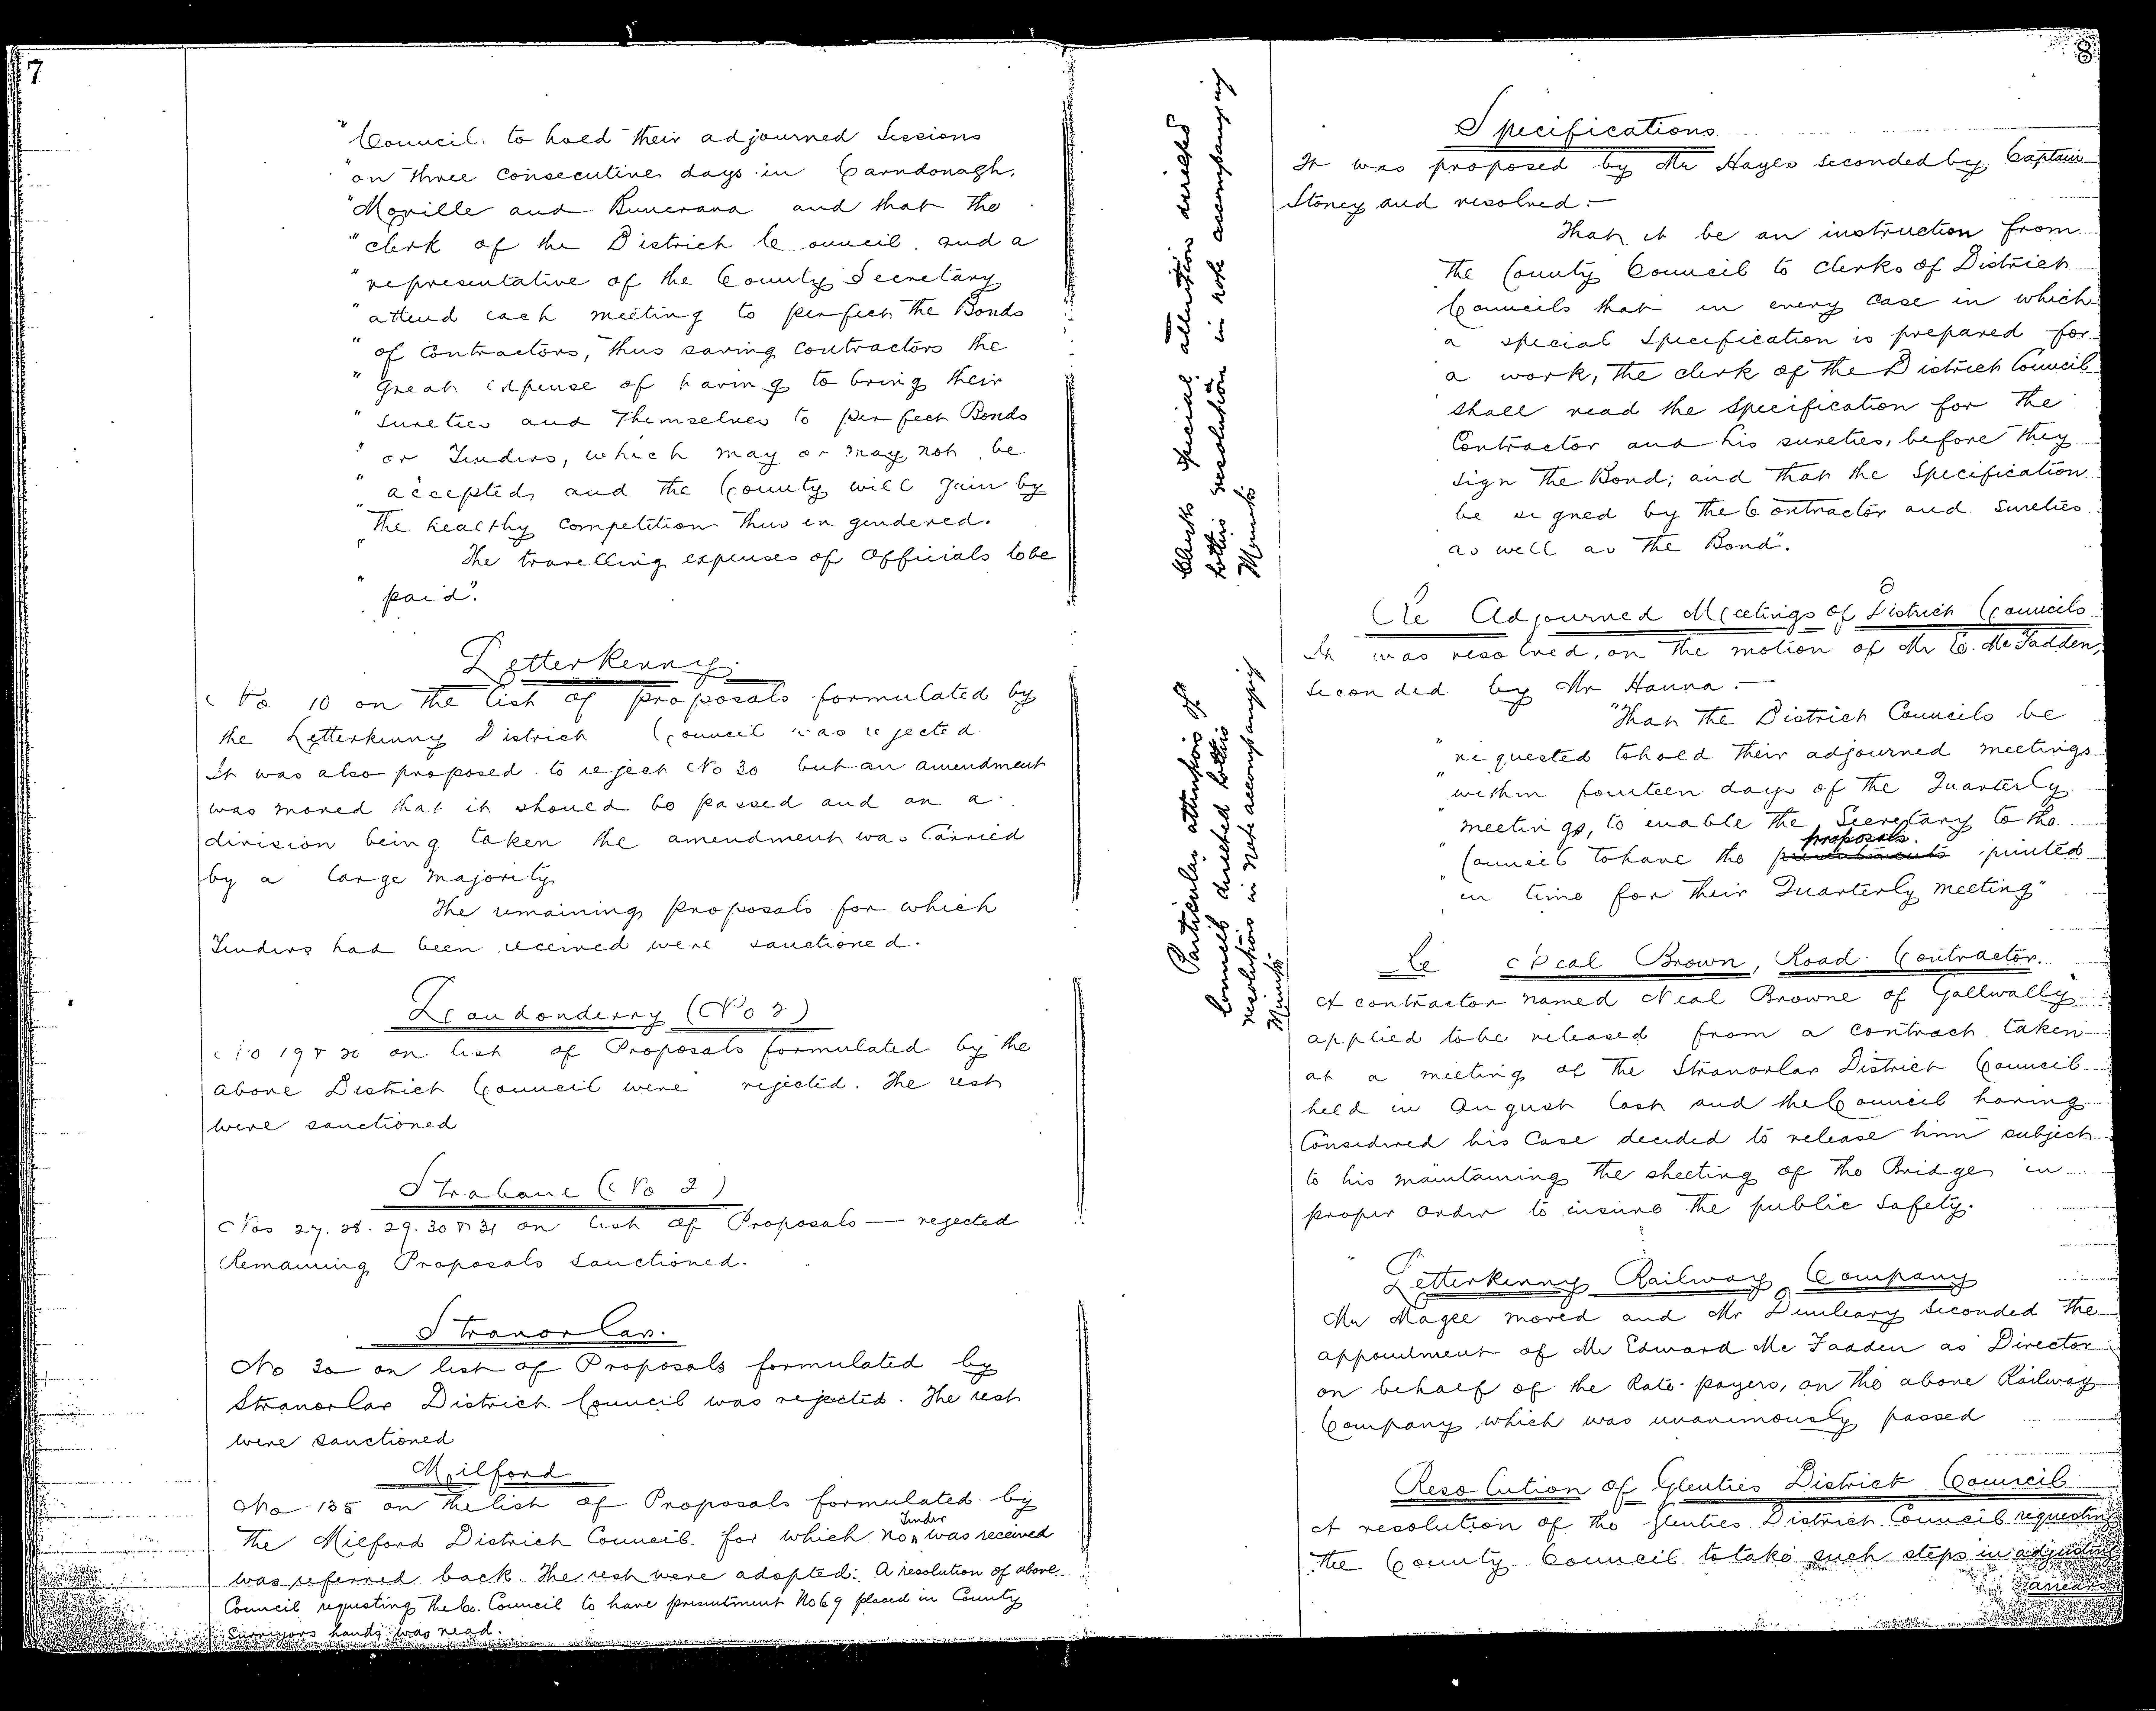 7
"Council. to hold their adjourned Sessions
"on three consecutive days in Carndonagh,
"Moville and Buncrana and that the
"clerk of the District Council. and a
"representative of the County Secretary
"attend each meeting to perfect the Bonds
"of Contractors, thus saving contractors the
"great expense of having to bring their
"sureties and themselves to perfect Bonds
"or Tenders, which may or may not be
"accepted, and the County will gain by
"the healthy competition thus engendered.
"The travelling expenses of Officials to be
"paid".
Letterkenny.
No 10 on the list of proposals formulated by
the Letterkenny District Council was rejected.
It was also proposed to reject No 30 but an amendment
was moved that it should be passed and on a
division being taken the amendment was Carried
by a large majority
The remaining proposals for which
Tenders had been received were sanctioned.
Londonderry (No 2)
No 19 & 20 on list of Proposals formulated by the
above District Council were rejected. The rest
were sanctioned
Strabane (No 2)
Nos 27. 28. 29. 30 & 31 on list of Proposals — rejected
Remaining Proposals Sanctioned.
Stranorlar.
No 30 on list of Proposals formulated by
Stranorlar District Council was rejected. The rest
were sanctioned
Milford
No 135 on the list of Proposals formulated by
the Milford District Council for which no Tender was received
was referred back. The rest were adopted: A resolution of above
Council requesting the Co. Council to have presentment No 69 placed in County
Surveyors hands was read.
8
Clerks special attention directed
to this resolution in note accompanying
Minutes
Particular attention of
Councils directed to this
resolution in note accompanying
Minutes
Specifications
It was proposed by Mr Hayes seconded by Captain
Stoney and resolved:—
That it be an instruction from
the County Council to Clerks of District
Councils that in every case in which
a special Specification is prepared for
a work, the clerk of the District Council
shall read the Specification for the
Contractor and his sureties, before they
sign the Bond; and that the Specification
be signed by the Contractor and Sureties
as well as the Bond".
Re Adjourned Meetings of District Councils
It was resolved, on the motion of Mr E. McFadden,
seconded by Mr Hanna:—
"That the District Councils be
"requested to hold their adjourned meetings
"within fourteen days of the Quarterly
"meetings, to enable the Secretary to the
"Council to have the presentments proposals printed
"in time for their Quarterly meeting"
Re Neal Brown, Road Contractor.
A contractor named Neal Browne of Gallwally
applied to be released from a contract taken
at a meeting of the Stranorlar District Council
held in August last and the Council having
Considered his Case decided to release him subject
to his maintaining the sheeting of the Bridge in
proper order to insure the public safety.
Letterkenny Railway Company
Mr Magee moved and Mr Dunleavy seconded the
appointment of Mr Edward McFadden as Director
on behalf of the Rate-payers, on the above Railway
Company which was unanimously passed
Resolution of Glenties District Council
A resolution of the Glenties District Council requesting
the County Council to take such steps in adjusting
arrears